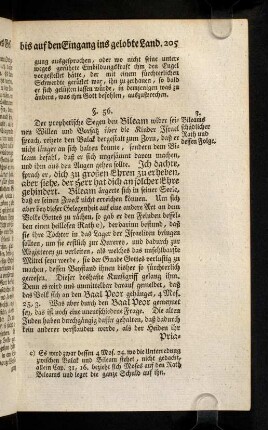 bis auf den Eingang ins gelobte Land. 205
zung ausgesprochen, oder wo nicht seine unter
weges gerührte Einbildungskraft ihm den Engel
vorgestellet hätte, der mit einem fürchterlichen
Schwerdte gerüstet war, ihn zu hauen, so bald
er sich gelüsten lassen würde, in demjenigen was zu
ändern, was ihm Gott befohlen, auszusprechen.
§. 56.
Der prophetische Segen des Bileam wider sei-
nen Willen und Vorsatz über die Kinder Israel
sprach, reizete den Balak dergestalt zum Zorn, daß er
nicht länger an sich halten konnte, sondern dem Bi-
leam befahl, daß er sich ungesäumt davon machen,
und ihm aus den Augen gehen sollte. Ich dachte,
sprach er, dich zu großen Ehren zu erheben,
aber siehe, der Herr hat dich an solcher Ehre
gehindert. Bileam ärgerte sich in seiner Seele,
daß er seinen Zweck nicht erreichen können. Um sich
aber bey dieser Gelegenheit auf eine andere Art an dem
Volke Gottes zu rächen, so gab er den Feinden desselben
einen höllischen Rath e), der darinn bestund, daß
sie ihre Töchter in das Lager der Israeliten bringen
sollten, um sie erstlich zur Hurerey, und dadurch zur
Abgötterey zu verleiten, als welches das
Mittel seyn werde, sie der Gnade Gottes verlustig zu
machen, dessen Beystand ihnen bisher so
gewesen. Dieser boshafte Kunstgriff gelung ihm.
Denn es wird uns unmittelbar darauf gemeldet, daß
das Volk sich an den Baal Peor gehänget, 4 Mos.
25, 3. Was aber durch den Baal Peor gemeynet
sey, das ist noch eine unentschiedene Frage. Die alten
Juden haben durchgängig dafür gehalten, daß dadurch
kein anderer verstanden werde, als der Heiden ihr
Pria-
9.
Bileams
schädlicher
Rath und
dessen Folge.
e) Es wird zwar dessen 4 Mos. 24. wo die Unterredung
zwischen Balak und Bileam stehet, nicht gedacht,
allein Cap. 31, 16. beziehet sich Moses auf den Rath
Bileams und leget die ganze Schuld auf ihn.